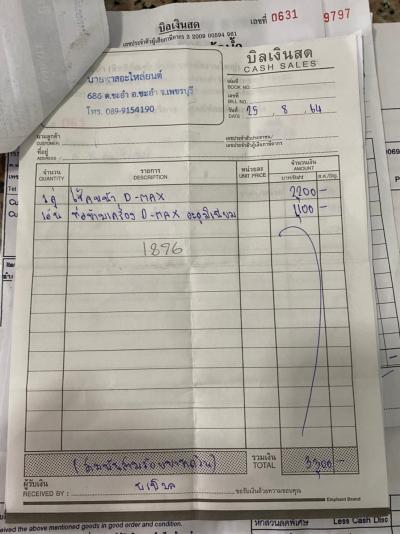 บิลเงินสด
เลขที่ 0631 9797
บิลเงินสด
CASH SALES
686 ต.ชะอำ อ.ชะอำ จ.เพชรบุรี
โทร. 089-9154190
เล่มที่
BOOK NO.
เลขที่
BILL NO.
วันที่
DATE 25 8 64
นามลูกค้า
CUSTOMER
ที่อยู่
ADDRESS
เลขประจำตัวประชาชน/
เลขประจำตัวผู้เสียภาษีอากร
จำนวน รายการ หน่วยละ จำนวนเงิน
QUANTITY DESCRIPTION UNIT PRICE AMOUNT
1 คู่ โช้คหน้า D-MAX 2200 -
D-MAX 1100 -
1896
(สามพันสามร้อยบาทถ้วน) รวมเงิน
TOTAL 3300 -
ผู้รับเงิน
RECEIVED BY : ขอรับเงินด้วยความขอบคุณ
Elephant Brand
ceived the above mentioned goods in good order and condition.
หักส่วนลดพิเศษ Less Cash Disc